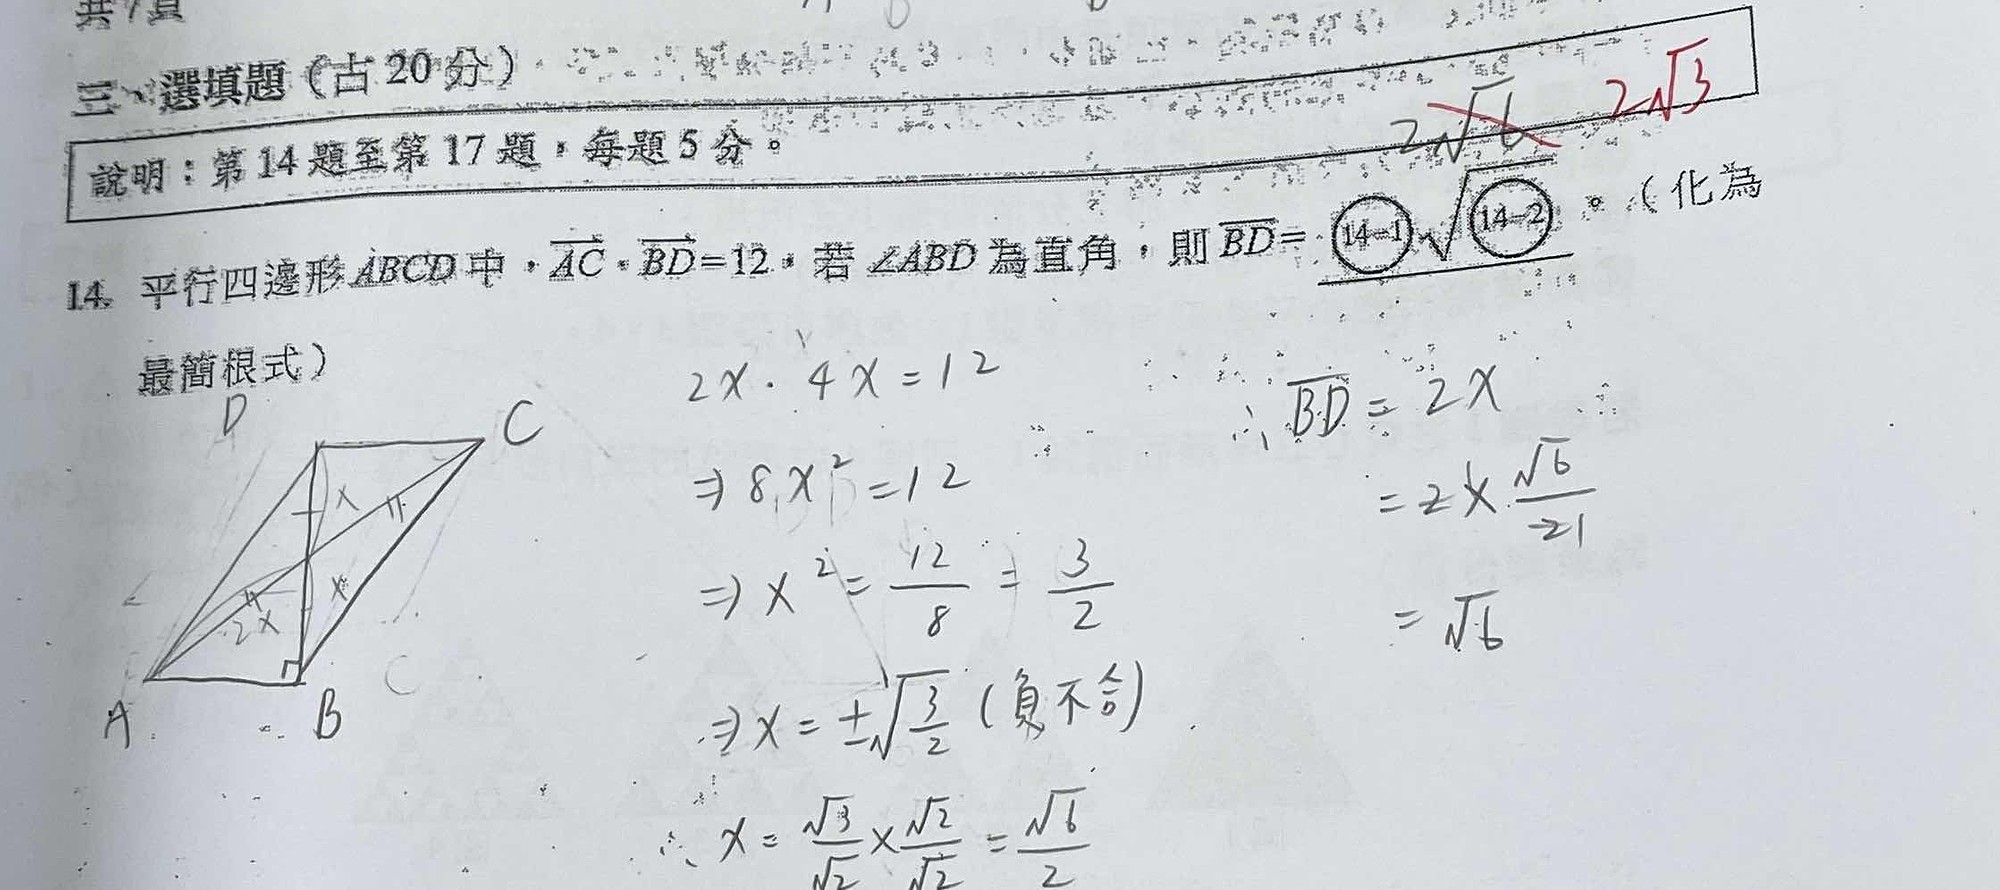 三、選填題（占 20 分）
說明：第 14 題至第 17 題，每題 5 分。
2√6 2√3
14. 平行四邊形 ABCD 中，AC · BD = 12，若 ∠ABD 為直角，則 BD = (14-1)√(14-2)。（化為
最簡根式）
D C
x
x
2x
A B C
2x · 4x = 12
⇒ 8x² = 12
⇒ x² = 12/8 = 3/2
⇒ x = ±√(3/2) (負不合)
∴ x = √3/√2 × √2/√2 = √6/2
∴ BD = 2x
= 2 × √6/21
= √6